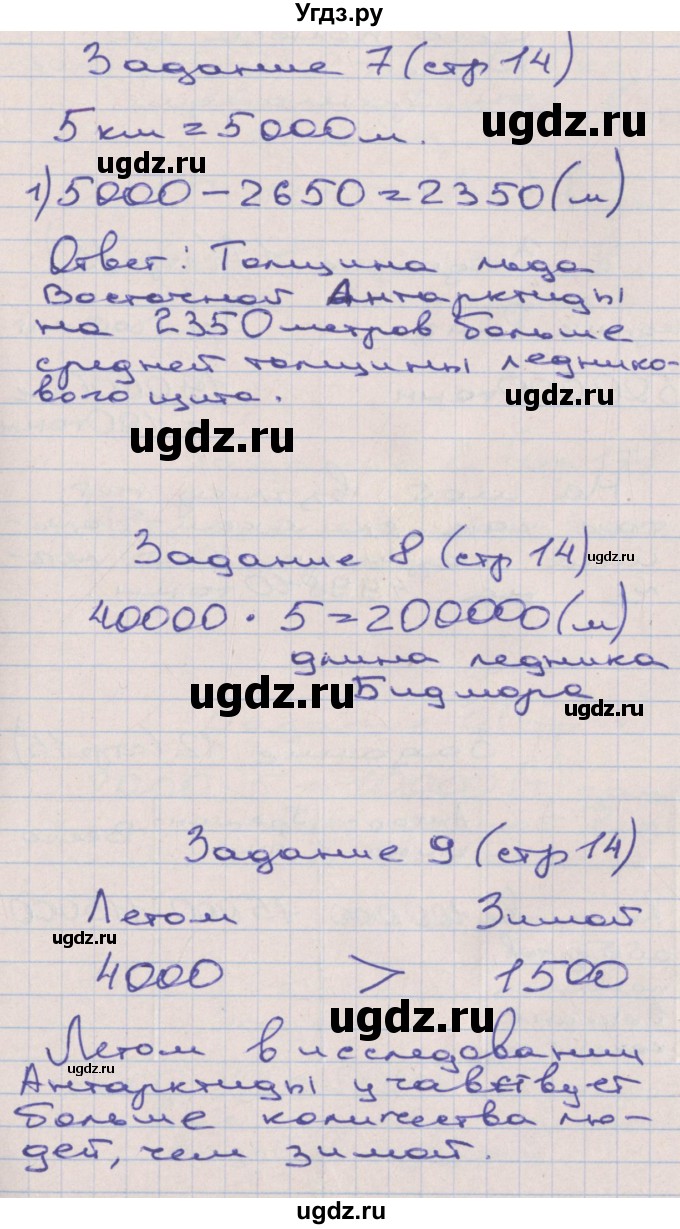 Угдз.ру
Задание 7 (стр 14)
5 км = 5000 м.
ugdz.ru
ugdz.ru
1) 5000 - 2650 = 2350 (м)
Ответ: Толщина льда
Восточной Антарктиды
на 2350 метров больше
средней толщины леднико-
вого щита.
ugdz.ru
ugdz.ru
Задание 8 (стр 14)
ugdz.ru
40000 · 5 = 200000 (м)
длина ледника
Бидмора
ugdz.ru
ugdz.ru
Задание 9 (стр 14)
Летом Зимой
ugdz.ru
4000 > 1500
ugdz.ru
Летом в исследовании
Антарктиды учавствует
больше количества лю-
дей, чем зимой.
ugdz.ru